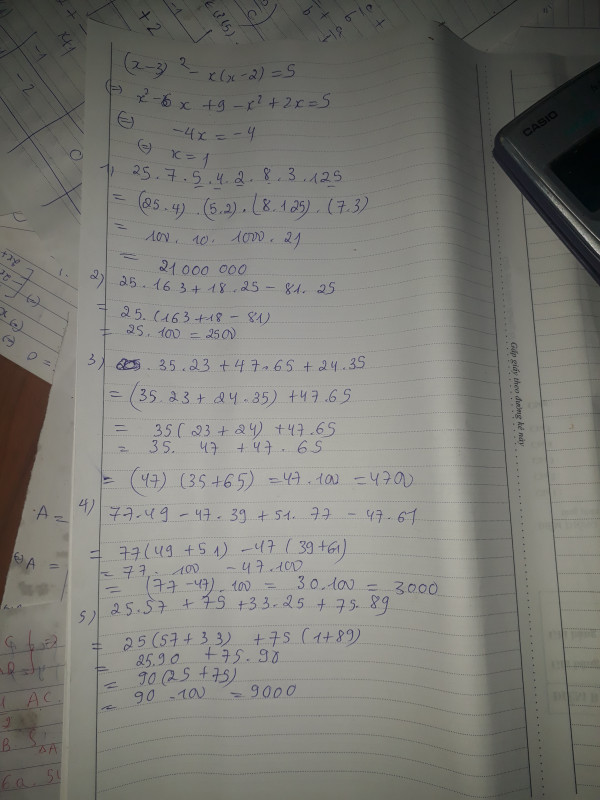 (x-3)² - x(x-2) = 5
(=) x² - 6x + 9 - x² + 2x = 5
(=) -4x = -4
(=) x = 1
1) 25.7.5.4.2.8.3.125
= (25.4).(5.2).(8.125).(7.3)
= 100.10.1000.21
= 21000 000
2) 25.163 + 18.25 - 81.25
= 25.(163+18-81)
= 25.100 = 2500
3) 35.23 + 47.65 + 24.35
= (35.23 + 24.35) + 47.65
= 35(23+24) + 47.65
= 35. 47 + 47.65
= (47) (35+65) = 47.100 = 4700
4) 77.49 - 47.39 + 51.77 - 47.61
= 77(49+51) - 47(39+61)
= 77.100 - 47.100
= (77-47).100 = 30.100 = 3000
5) 25.57 + 75 + 33.25 + 75.89
= 25(57+33) + 75(1+89)
= 25.90 + 75.90
= 90(25+75)
= 90.100 = 9000
CASIO
Gấp giấy theo đường kẻ này
A =
(=) A =